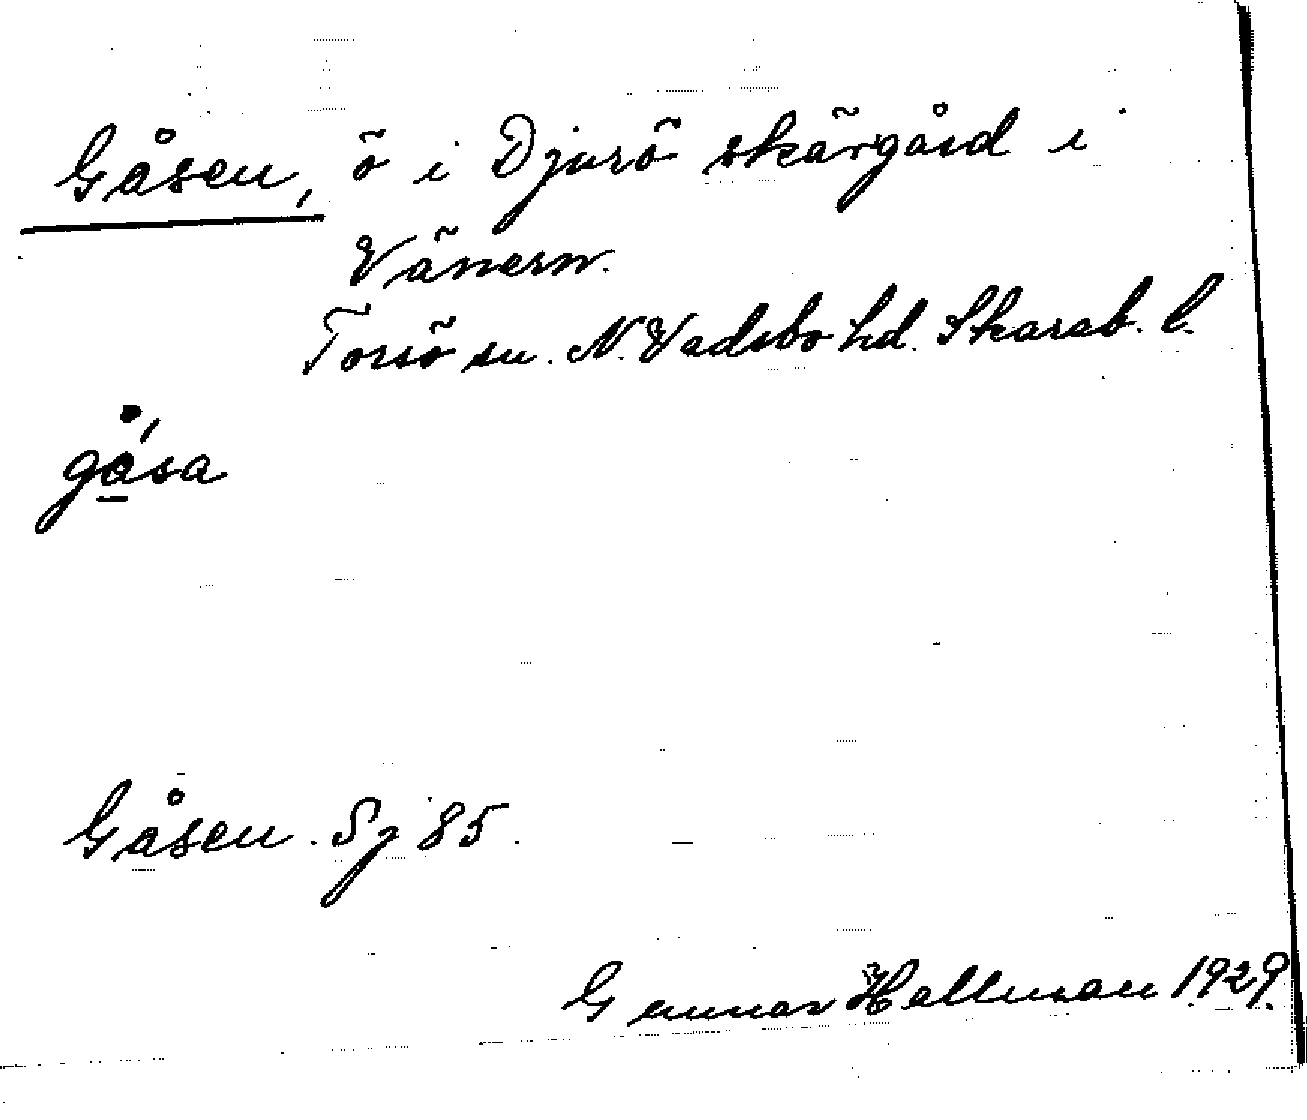 Gåsen, ö i Djurö skärgård i
Vänern.
Torsö sn. N. Vadsbo hd. Skarab. l.
gǻ̱sa
Gåsen. Sj 85.
Gunnar Hallman 1929.